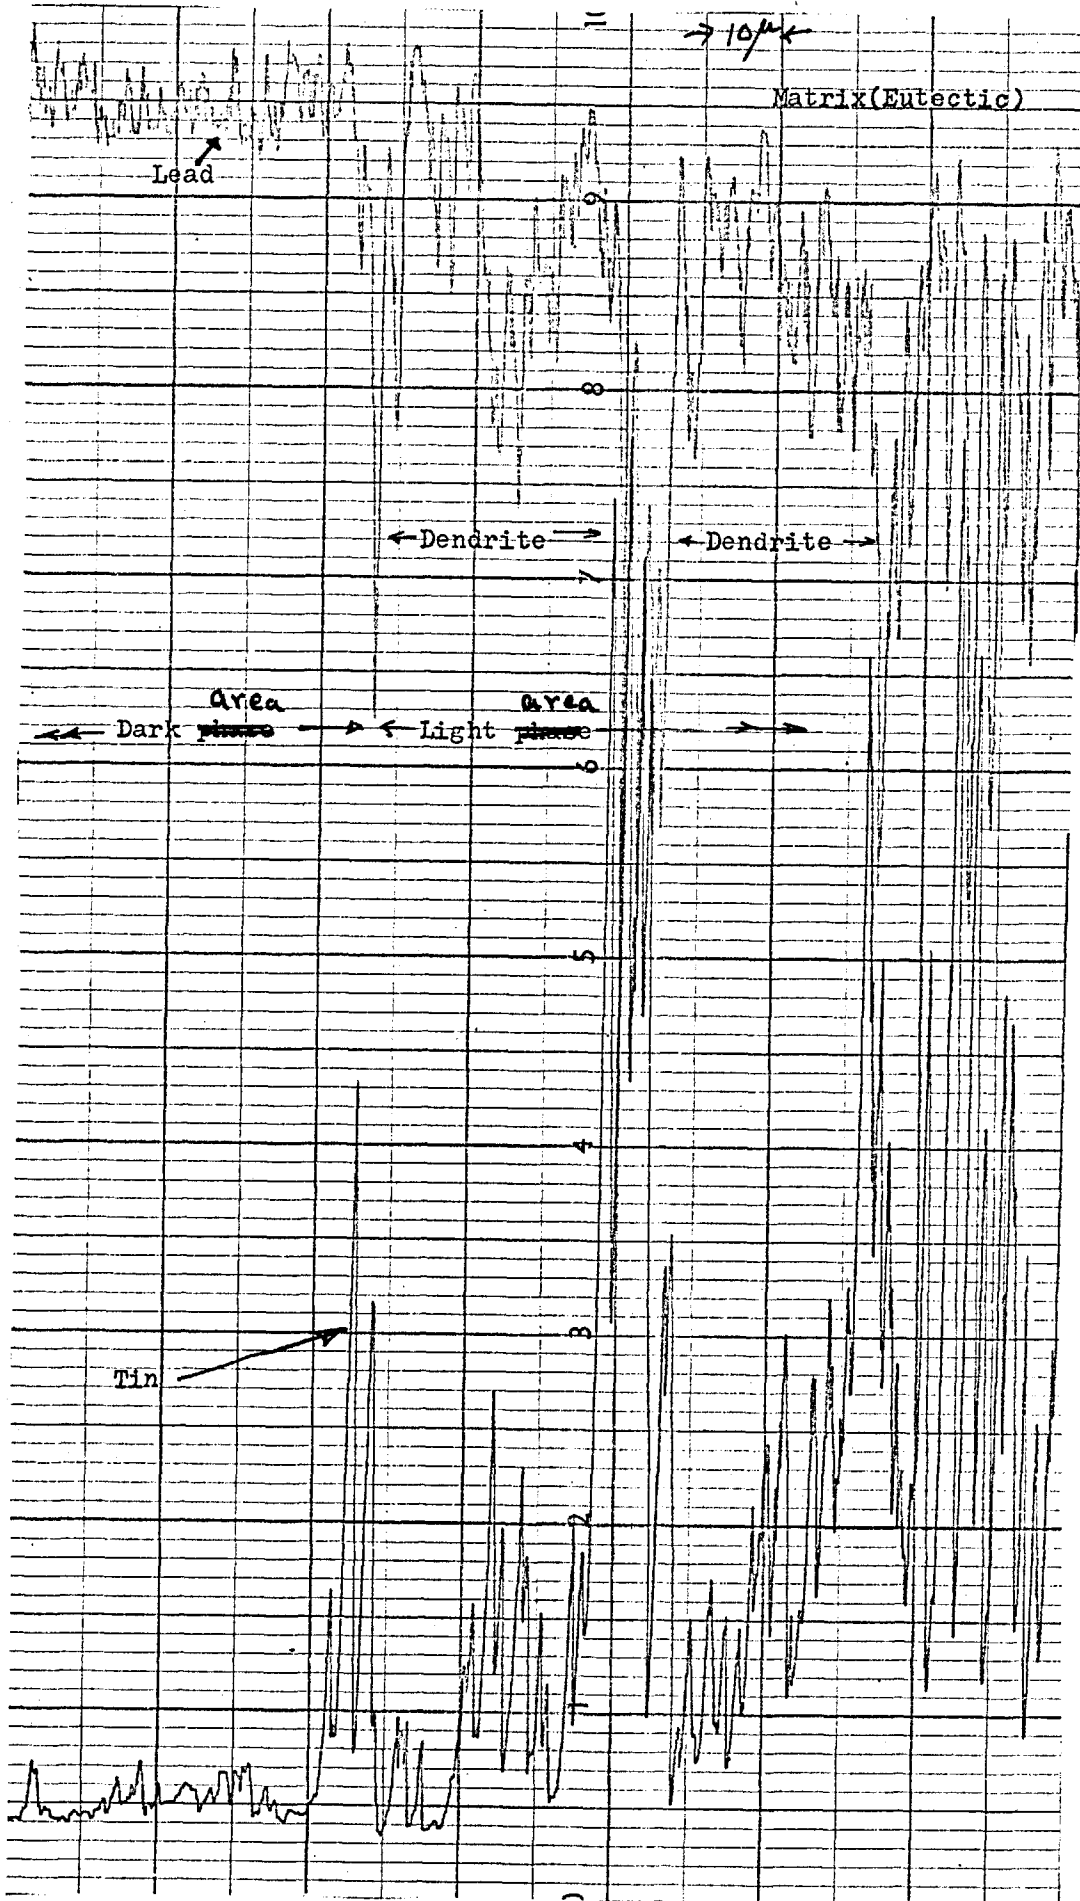 10
→ 10μ ←
Matrix(Eutectic)
Lead
9
8
←Dendrite→
←Dendrite→
7
area
area
Dark phase
Light phase
6
5
4
3
Tin
2
1
0